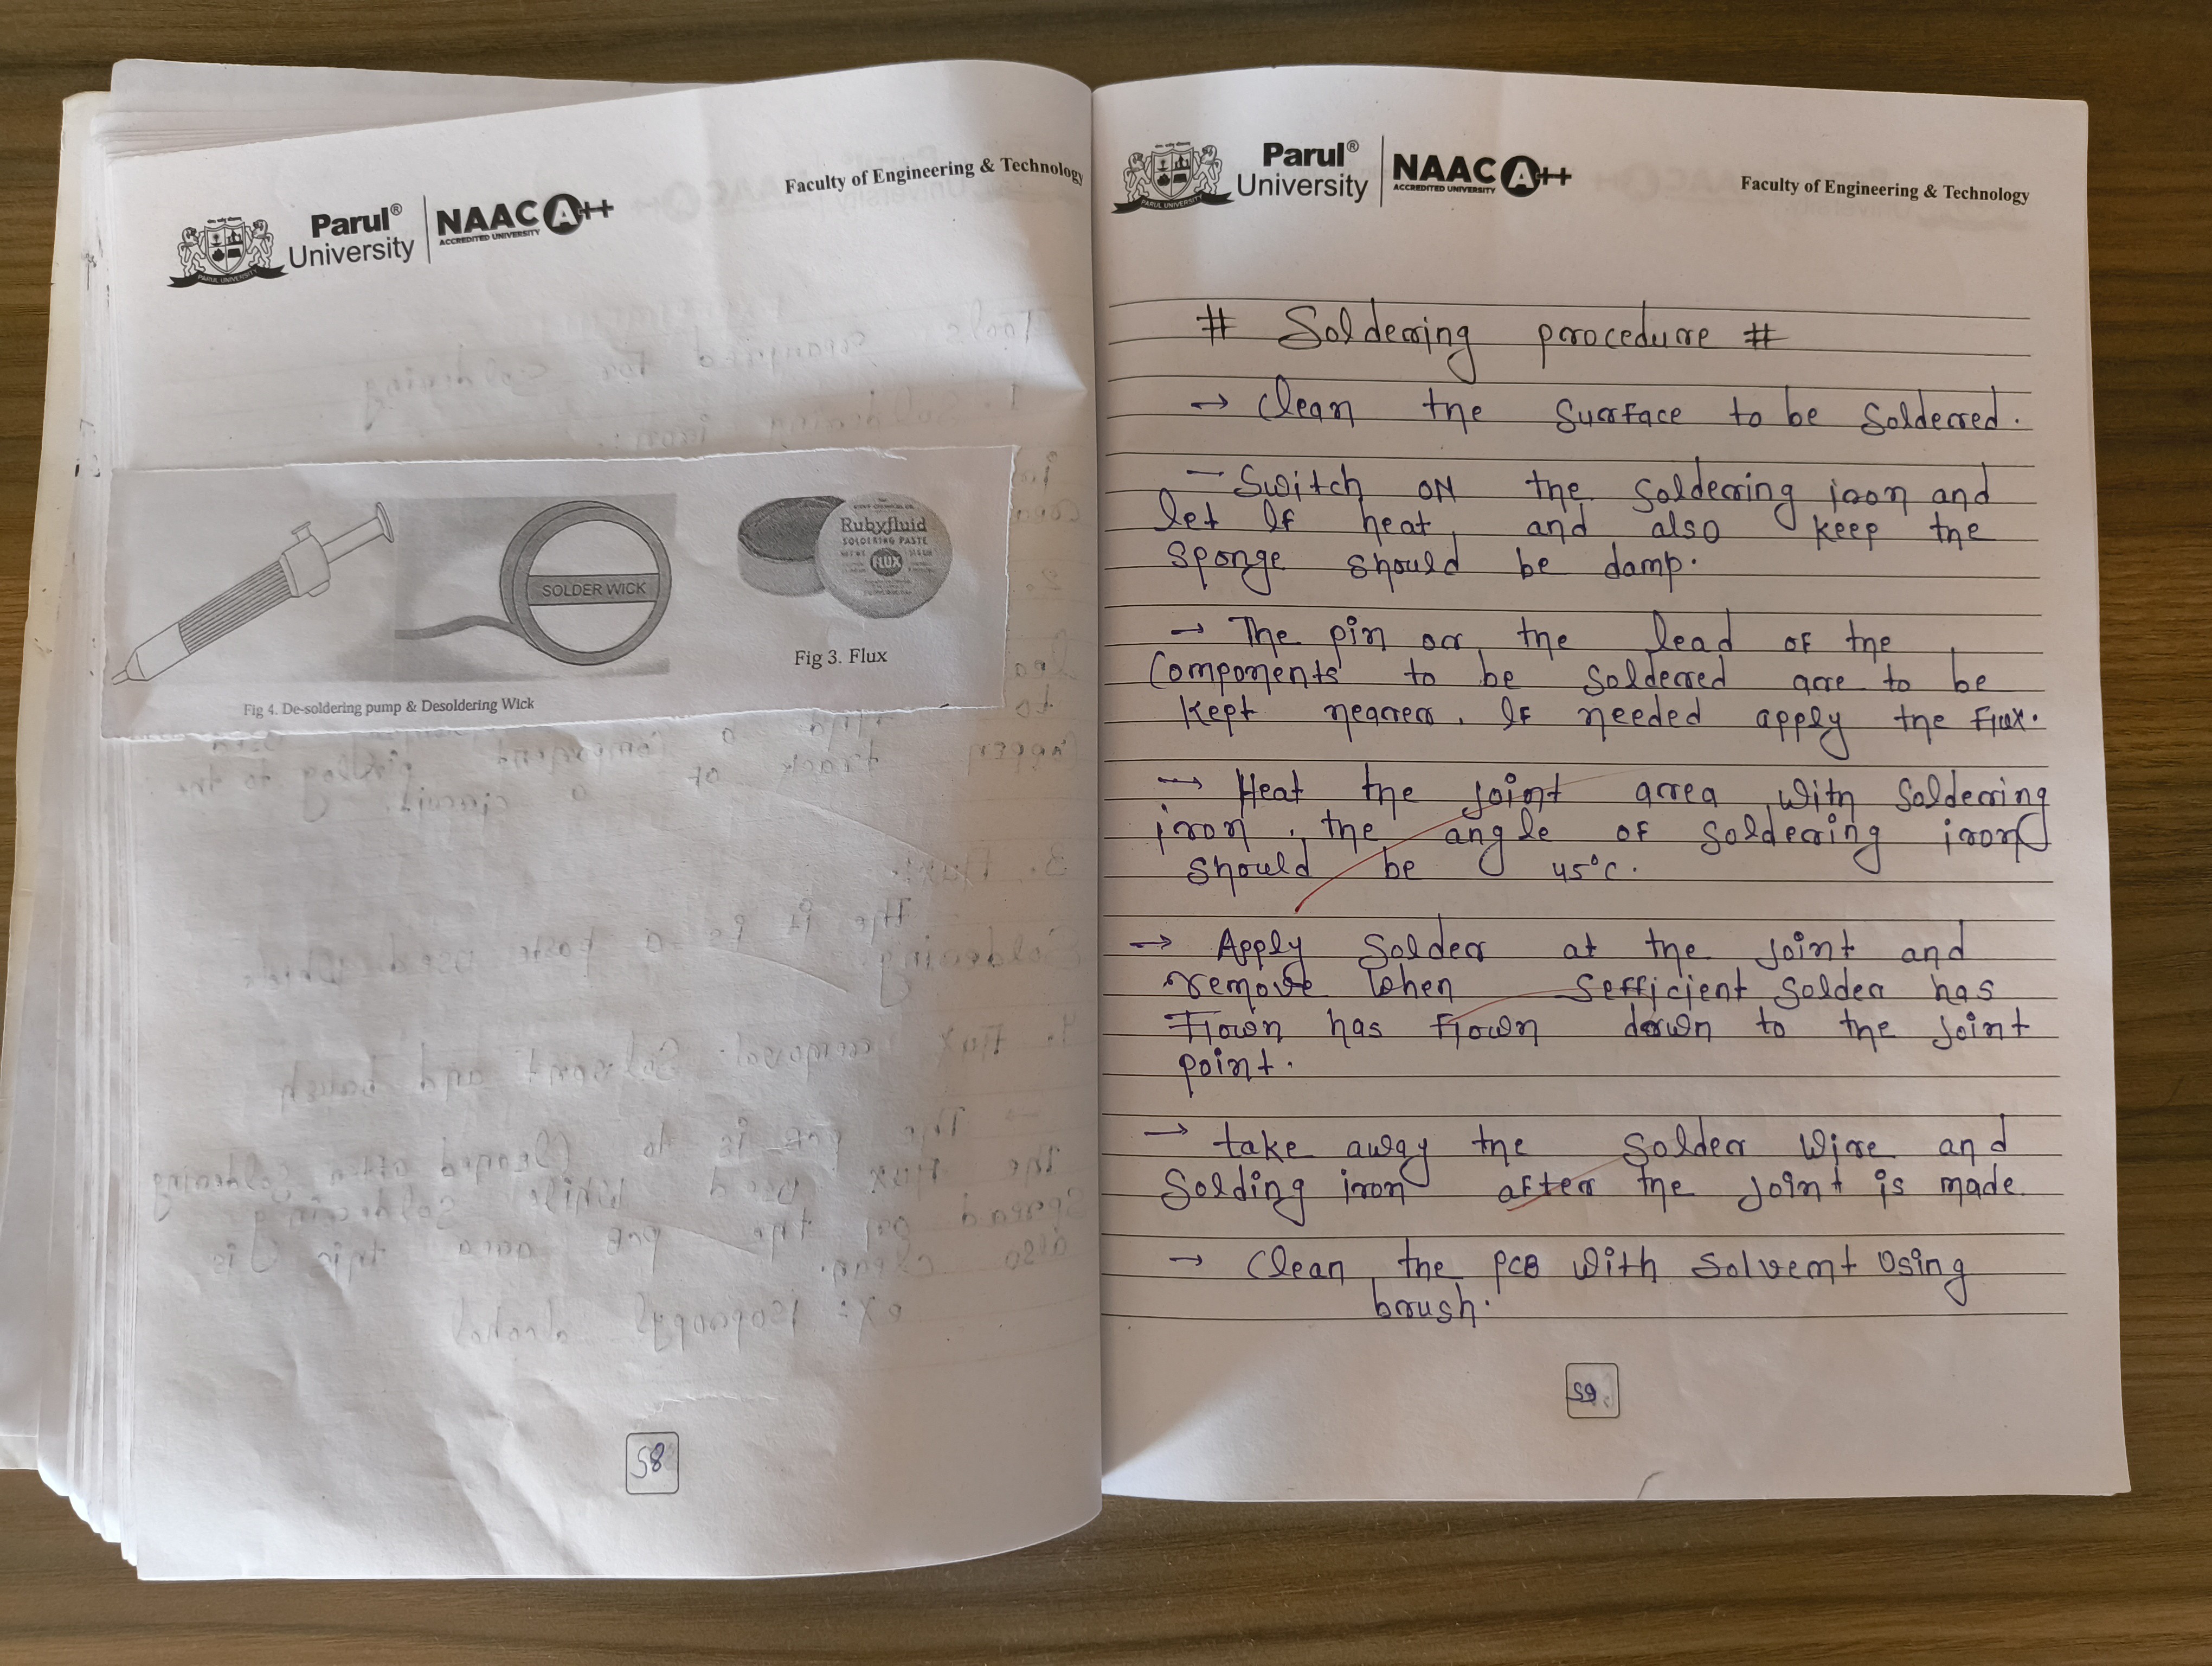 Parul®
University
NAAC A++
ACCREDITED UNIVERSITY
Faculty of Engineering & Technology
PARUL UNIVERSITY
SOLDER WICK
Rubyfluid
SOLDERING PASTE
FLUX
Fig 3. Flux
Fig 4. De-soldering pump & Desoldering Wick
58
Parul®
University
NAAC A++
ACCREDITED UNIVERSITY
Faculty of Engineering & Technology
PARUL UNIVERSITY
# Soldering procedure #
→ Clean the Surface to be Soldered.
— Switch ON the Soldering iron and
let If heat, and also keep the
Sponge should be damp.
→ The pin or the lead of the
Components to be Soldered are to be
kept nearer. If needed apply the Flux.
→ Heat the joint area with Soldering
iron, the angle of Soldering iron
Should be 45°C.
→ Apply Solder at the joint and
remove when Sefficient Solder has
Flown has flown down to the joint
point.
→ take away the Solder Wire and
Solding iron after the joint is made
→ Clean the PCB with Solvent Using
brush.
59